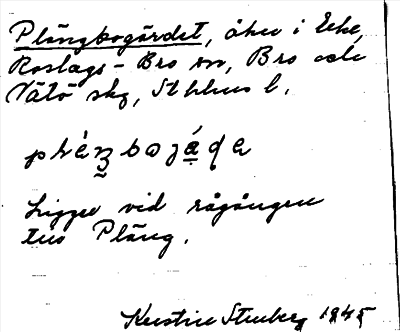 Plängbogärdet, åker i Eke,
Roslags-Bro sn, Bro och
Vätö skg, Sthlms l.
Ligger vid rågången
till Pläng.
Kerstin Stenberg 1945